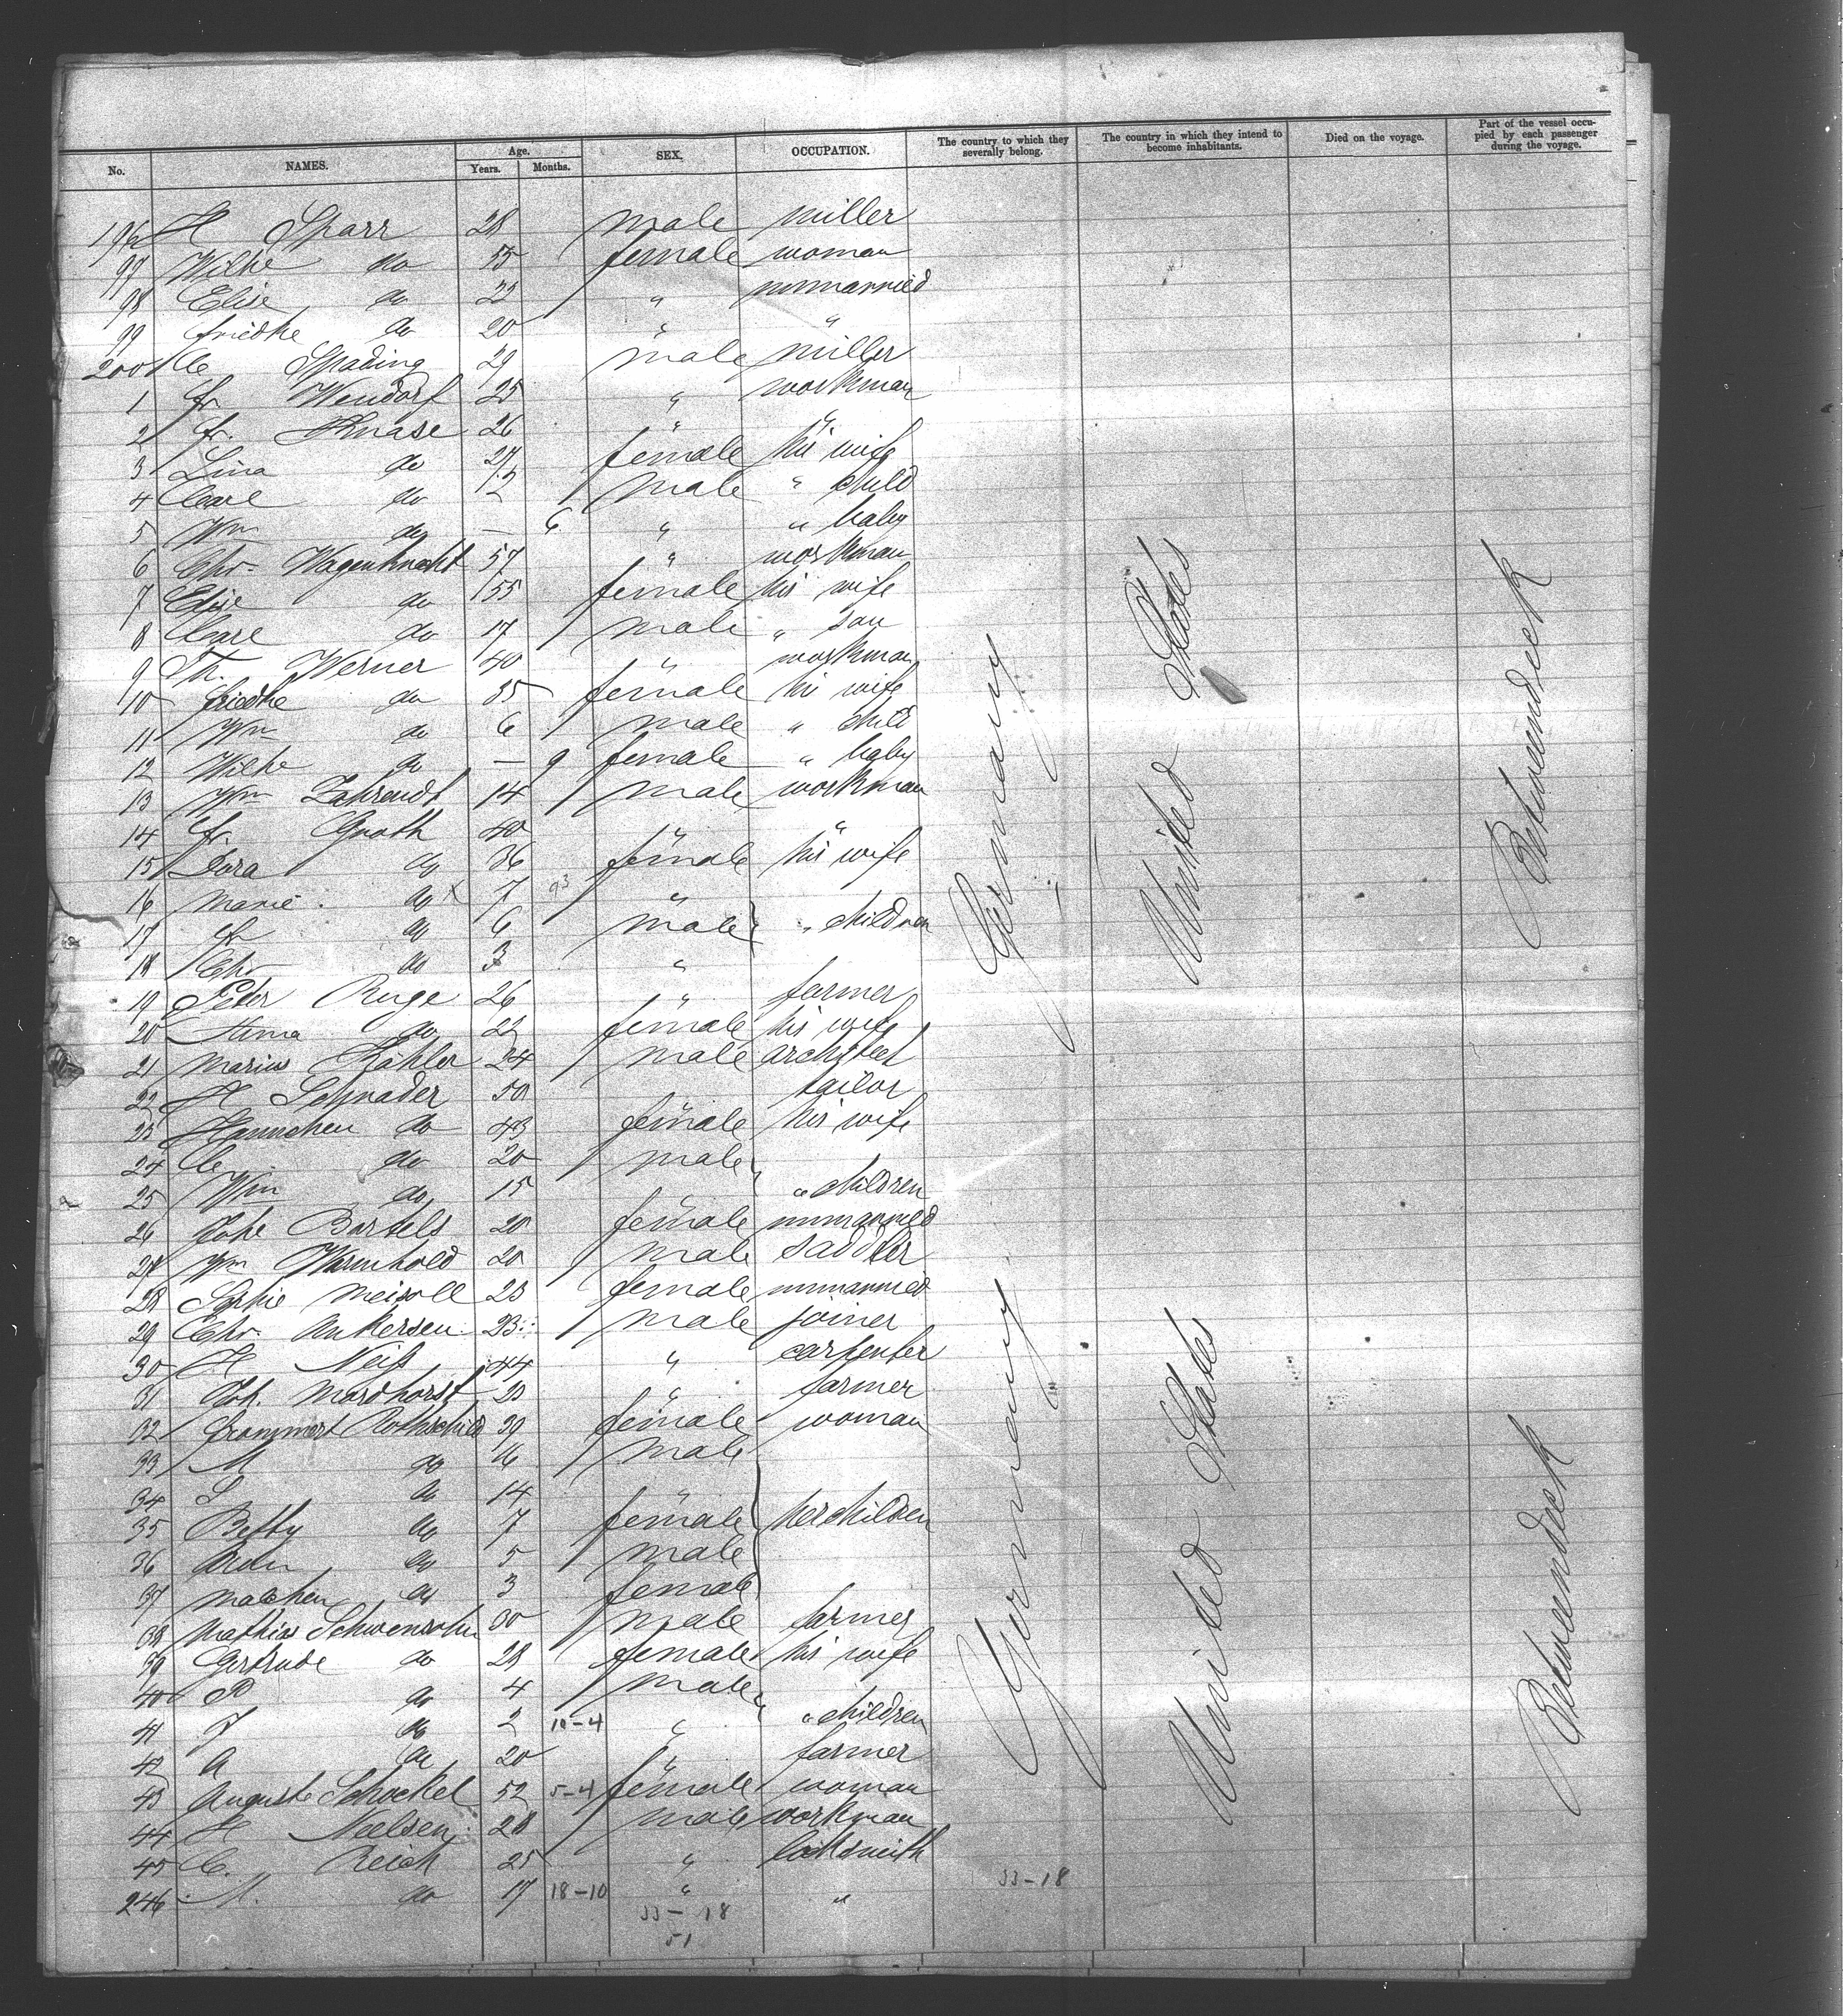 No. NAMES. Age. Years. Months. SEX. OCCUPATION. The country to which they severally belong. The country in which they intend to become inhabitants. Died on the voyage. Part of the vessel occupied by each passenger during the voyage.
196 H Sparr 28 male miller
97 Wilhe do 55 female woman
98 Elise do 22 " unmarried
99 Friedke do 20 " "
200 C Spading 29 male miller
1 Fr Wendorf 25 " workman
2 Fr. Knase 26 " "
3 Lina do 27 female his wife
4 Carl do 2 male " child
5 Wm do — 6 " " baby
6 Chr. Wagenknecht 57 " workman
7 Elise do 55 female his wife
8 Carl do 17 male " son
9 Th. Werner 40 " workman
10 Friedke do 35 female his wife
11 Wm do 6 male " child
12 Wilhe do — 9 female " baby
13 Wm Zahrendt 14 male workman
14 Fr. Gnoth 40 " "
15 Dora do 36 female his wife
16 Marie do x 7 "
17 Fr do 6 male " children
18 Chr do 3 "
19 Peter Ruge 26 " farmer
20 do 22 female his wife
21 Marius Kähler 24 male architect
22 H Schrader 50 " tailor
23 Hannchen do 43 female his wife
24 C. do 20 male
25 Wm do 15 " " children
26 Johe Bartels 20 female unmarried
27 Wm Warnhold 20 male saddler
28 Sophie Meisoll 23 female unmarried
29 Chr. Ankersen 23 male joiner
30 H Neiß 44 " carpenter
31 Joh. Mordhorst 23 " farmer
32 Frommert Rothschild 39 female woman
33 M do 16 male
34 S do 14 "
35 Betty do 7 female her children
36 do 5 male
37 Malchen do 3 female
38 Mathias Schwensohn 30 male farmer
39 Gertrude do 28 female his wife
40 P do 4 male
41 J do 2 10-4 " " children
42 A do 20 " farmer
43 Auguste Schockel 52 5-4 female woman
44 H Neelsen 28 male workman
45 C. Reich 25 " locksmith
246 M. do 17 18-10 " "
33-18
33-18
51
Germany
United States
Betweendeck
Germany
United States
Betweendeck